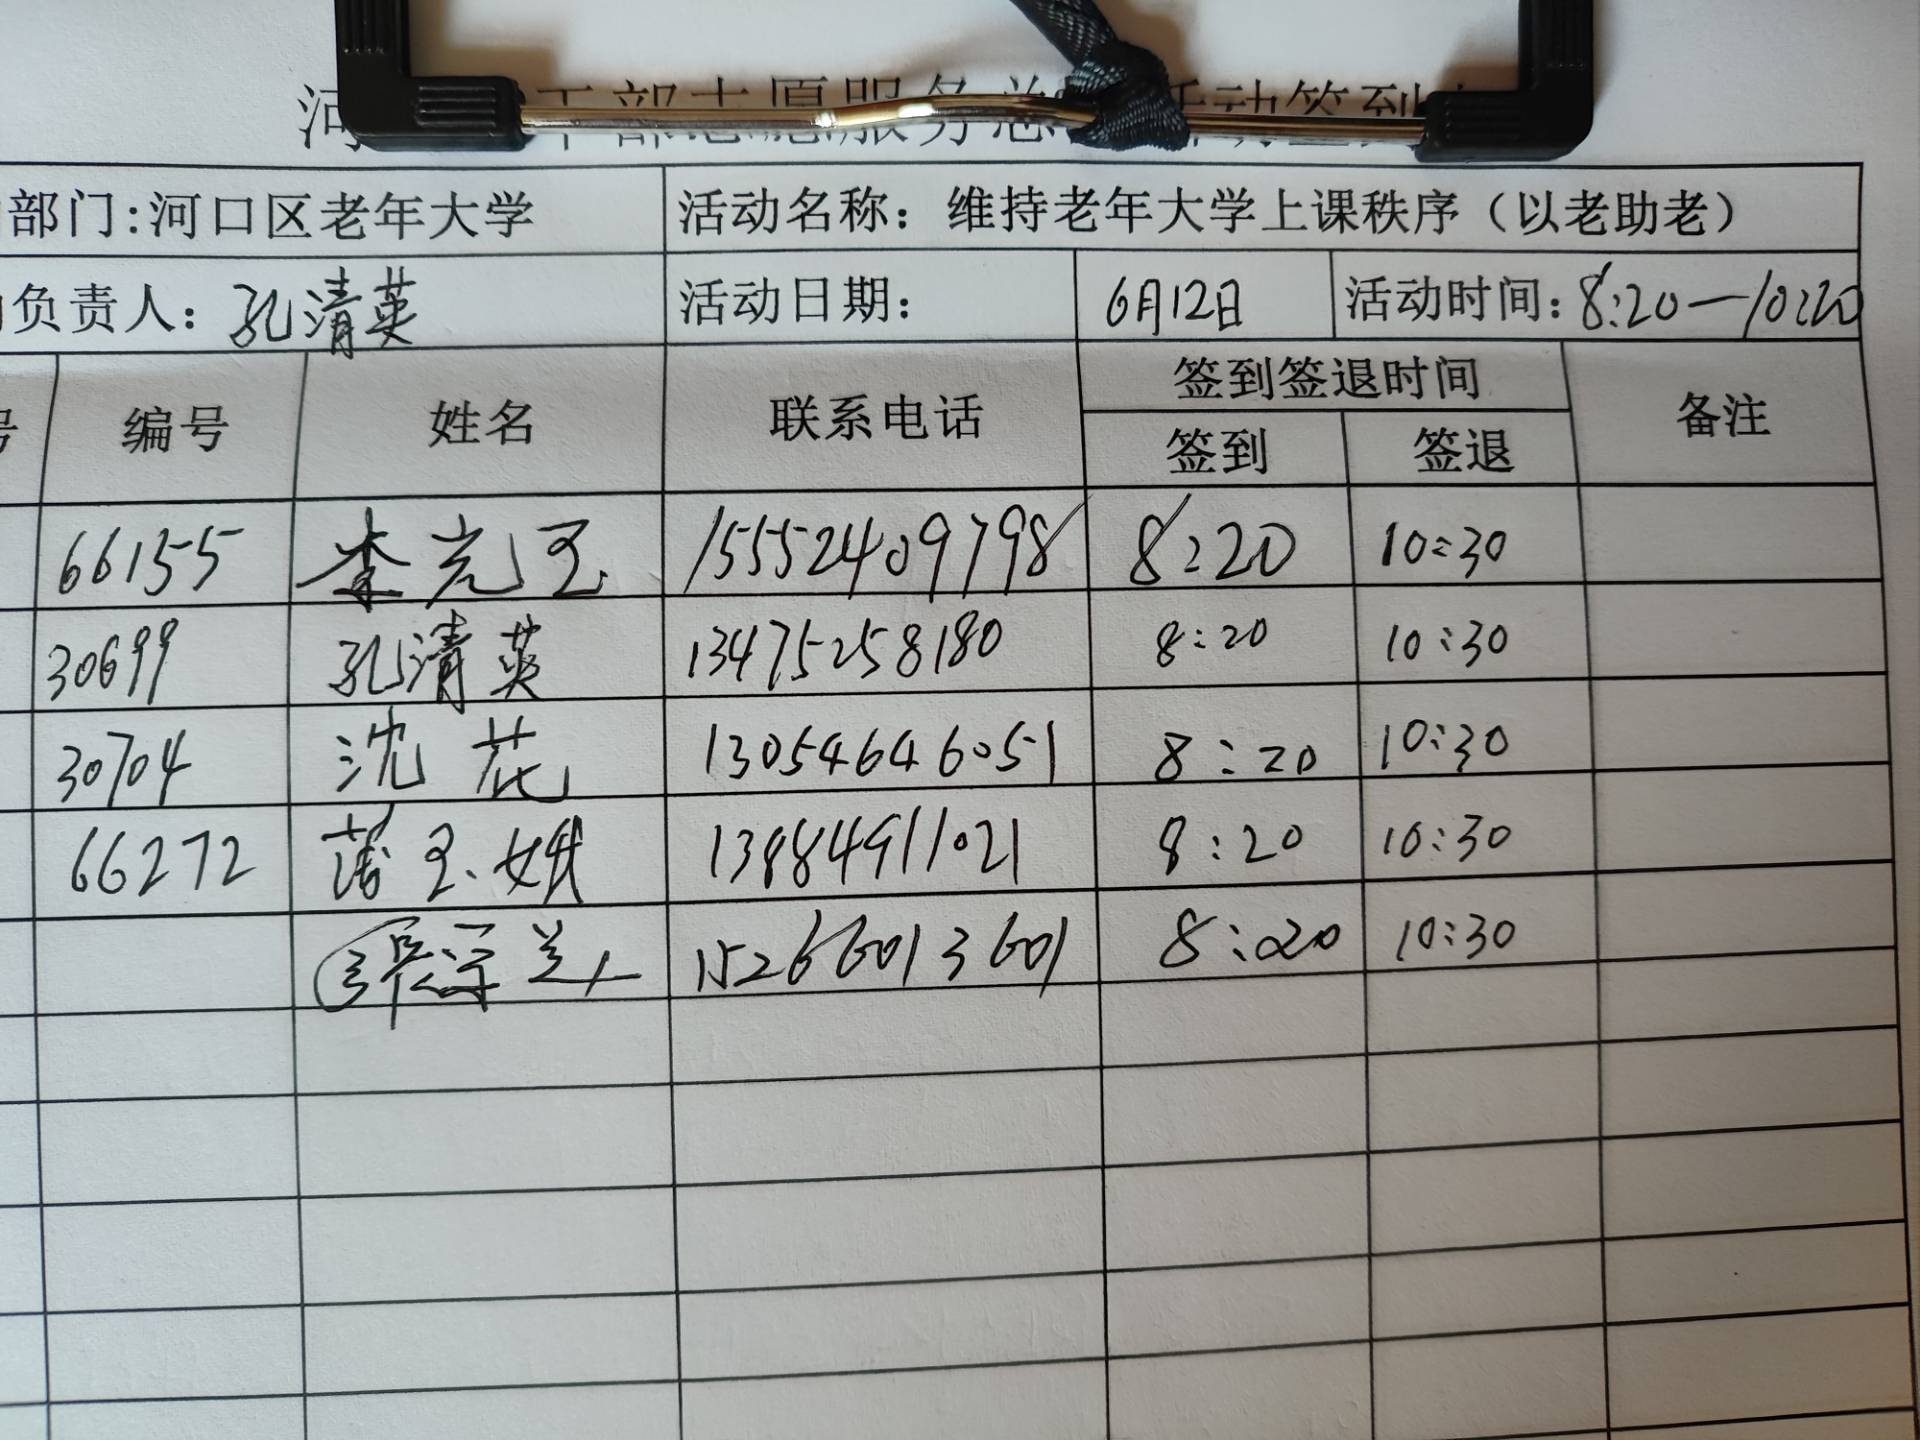 河 干部志愿服务总 活动签到
部门:河口区老年大学 活动名称：维持老年大学上课秩序（以老助老）
负责人：孔清英 活动日期： 6月12日 活动时间：8:20—10:20
号 编号 姓名 联系电话 签到签退时间 备注
签到 签退
66155 李光玉 15552409798 8:20 10:30
30699 孔清英 13475258180 8:20 10:30
30704 沈花 13054646051 8:20 10:30
66272 蒲玉娥 13884911021 8:20 10:30
15266013601 8:20 10:30